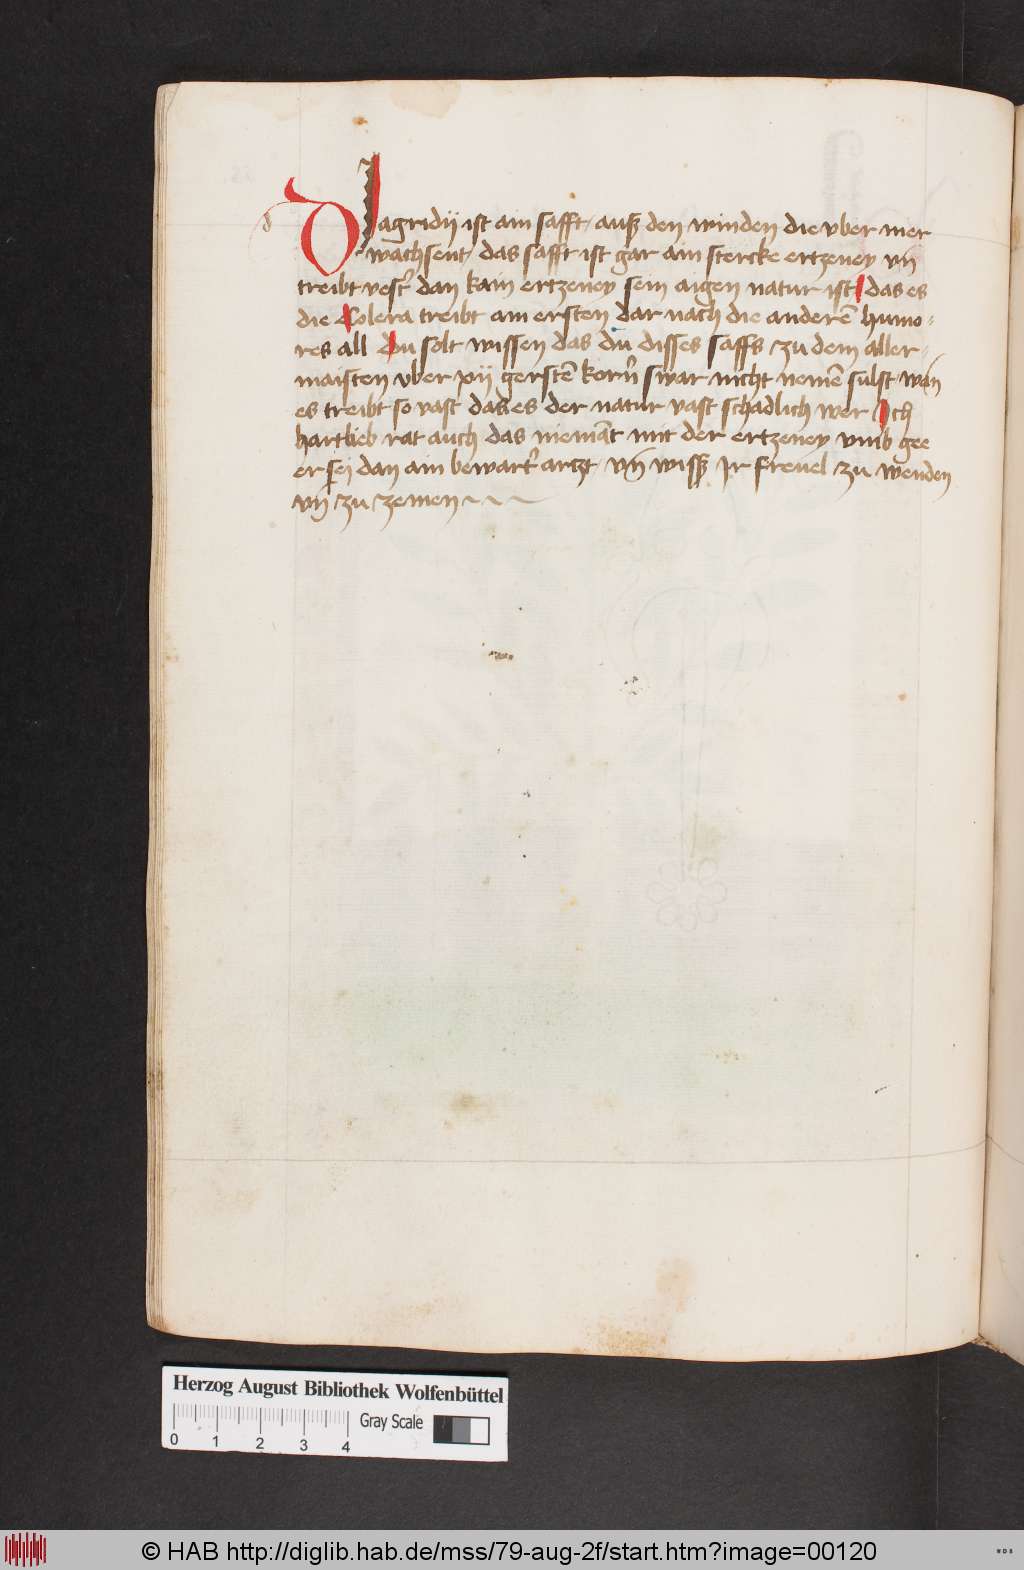 d
DIagridij ist ain safft / auß den winden die vber mer
wachsent / das safft ist gar ain stercke ertzeney vn̄
treibt vest᷑ dan kain ertzeney sein aigen natur ist das es
die Colera treibt am ersten dar nach die anderē humo⸗
res all Du solt wissen das du disses saffs zu dem aller⸗
maisten vber xij gerstē korn̄ swar nicht nemē sulst wan
es treibt so vast das es der natur vast schadlich wer Ich
hartlieb rat auch das niemāt mit der ertzeney vmb gee
er sei dan ain bewart᷑ artzt vn̄ wiss jr freuel zu wenden
vn̄ zu zemen ~ ~ ~
Herzog August Bibliothek Wolfenbüttel
Gray Scale
0 1 2 3 4
© HAB http://diglib.hab.de/mss/79-aug-2f/start.htm?image=00120